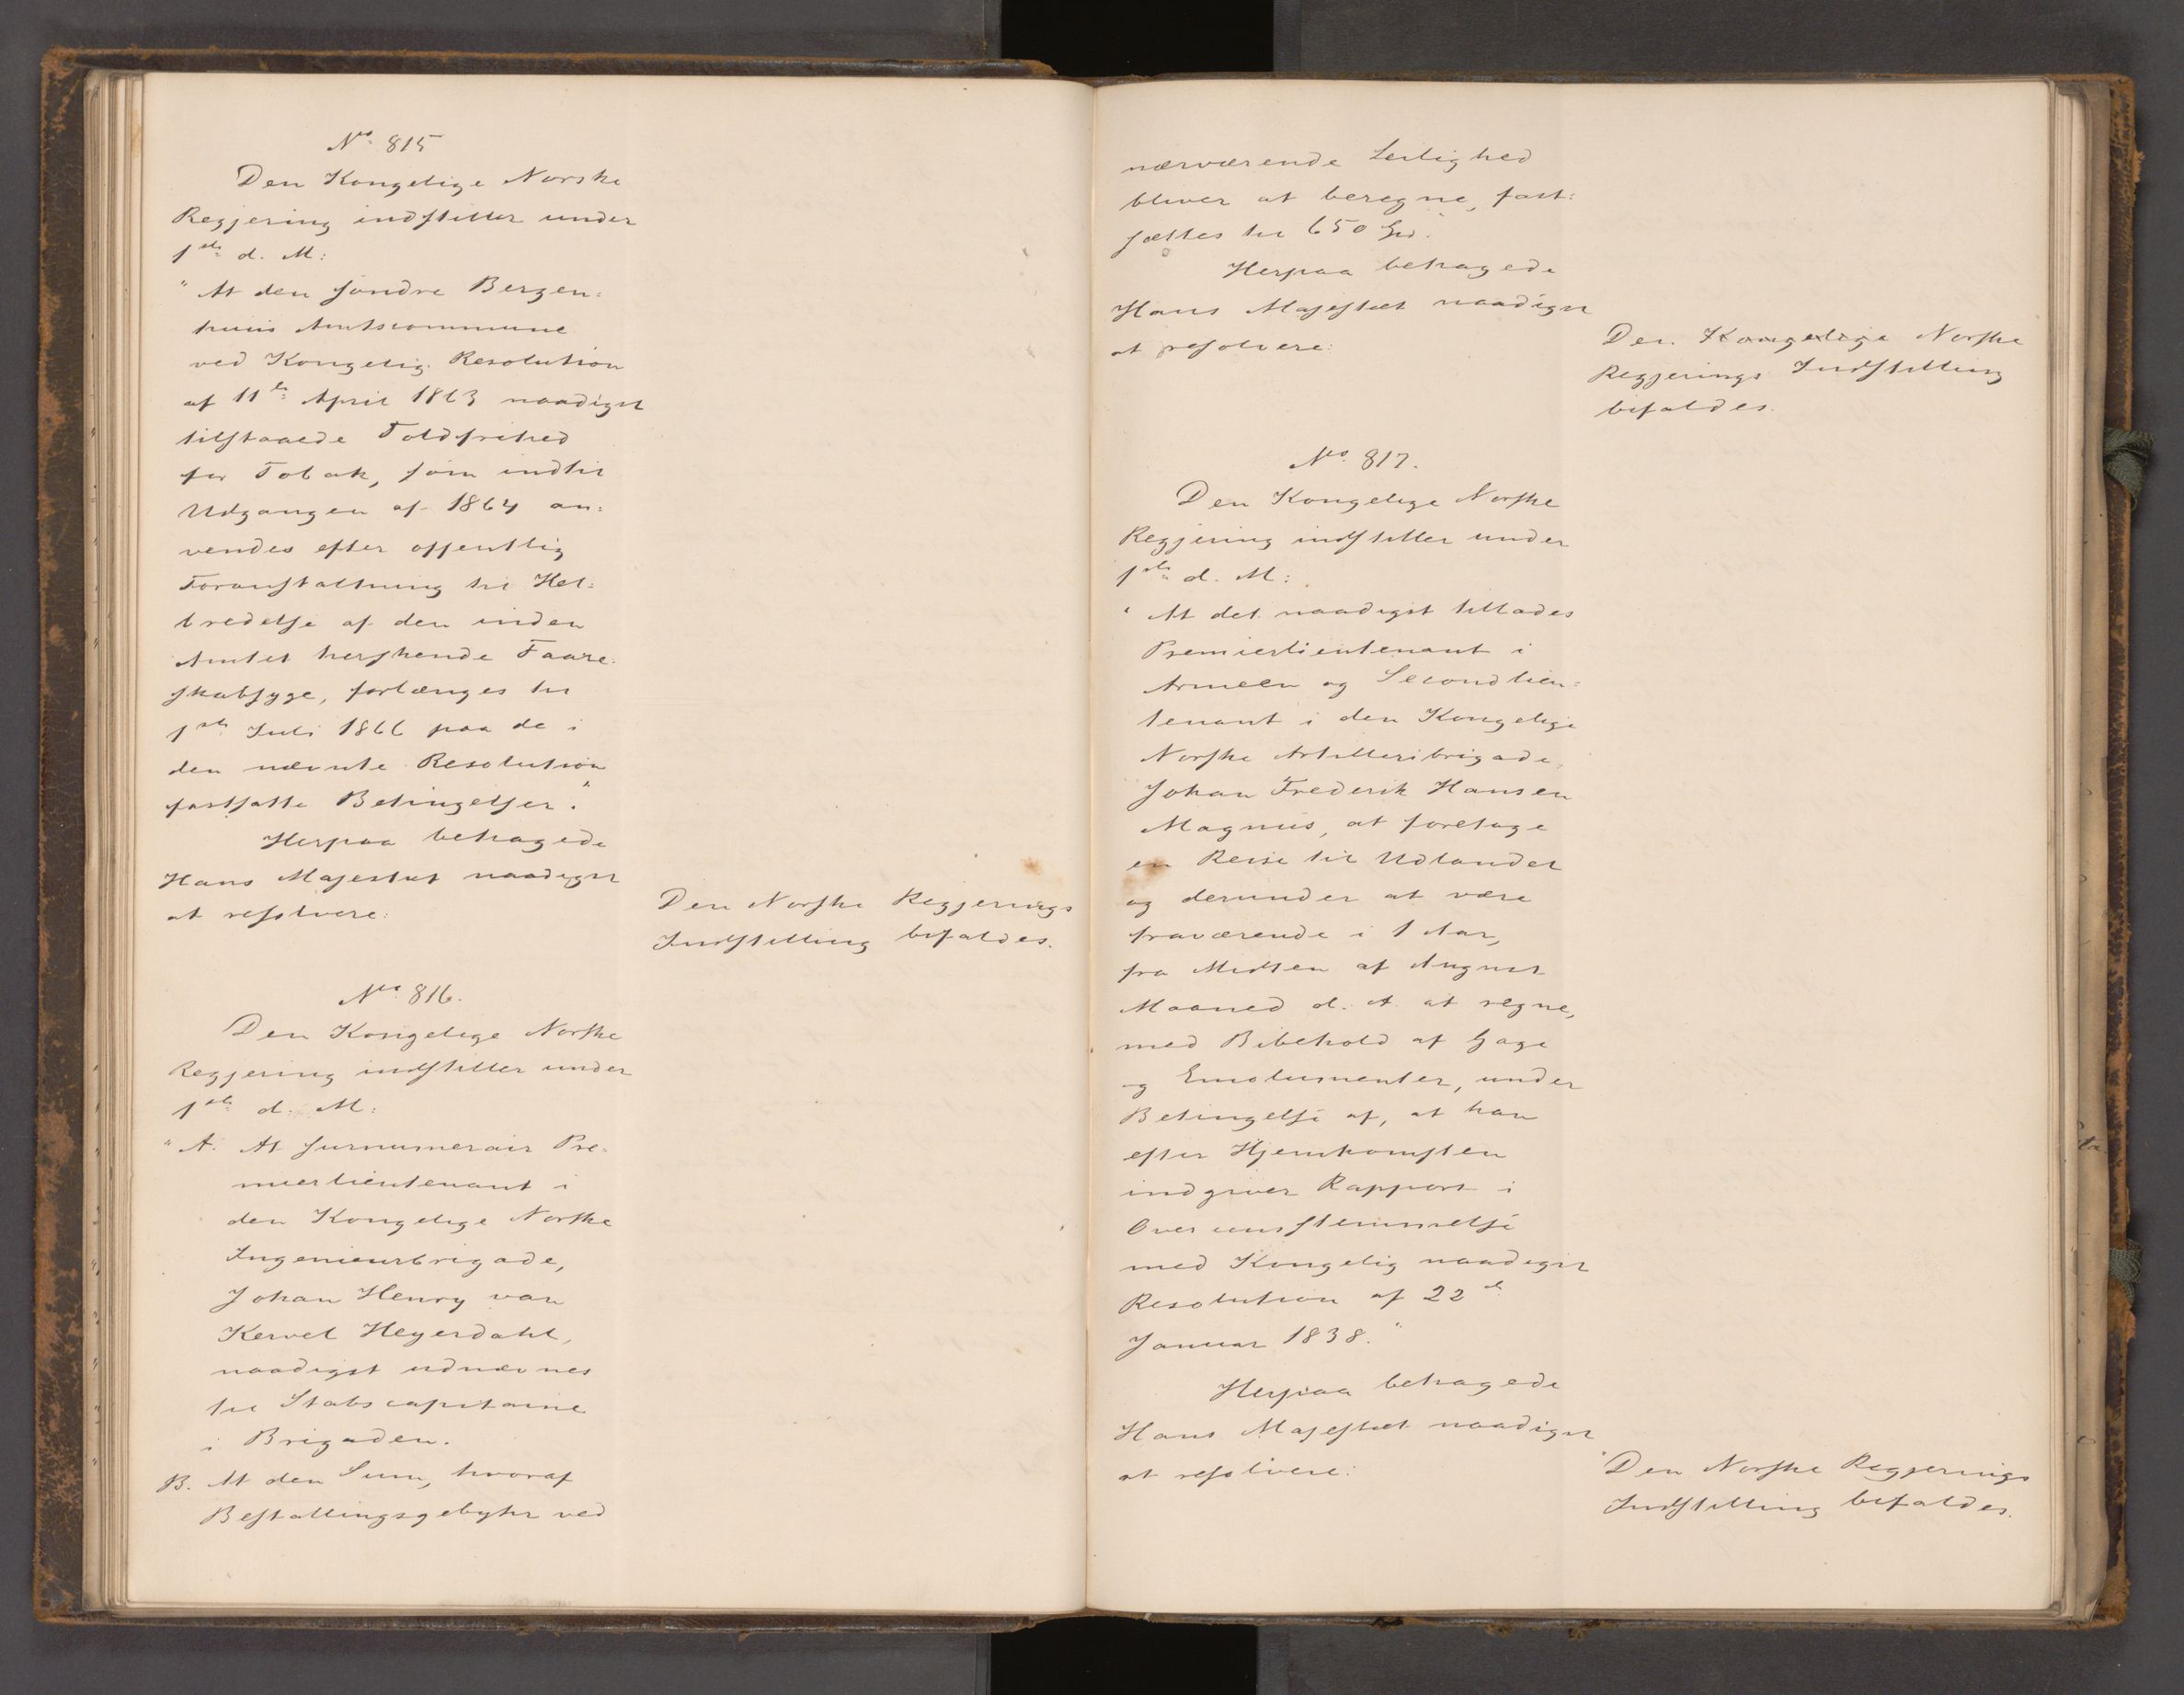 No. 815
Den Kongelige Norske
Regjering indstiller under
1ste d. M:
"At den søndre Bergen=
huus Amtscommune
ved Kongelig Resolution
af 11te April 1863 naadigst
tilstaaede Toldfrihed
for Tobak, som indtil
Udgangen af 1864 an=
vendes efter offentlig
Foranstaltning til Hel=
bredelse af den inden
Amtet herskende Faare=
skabsyge, forlænges til
1ste Juli 1866 paa de i
den nævnte Resolution
fastsatte Betingelser."
Herpaa behagede
Hans Majestæt naadigst
at resolvere:
Den Norske Regjerings
Indstilling bifaldes.
No. 816.
Den Kongelige Norske
Regjering indstiller under
1ste d. M:
"A. At surnumerair Pre=
mierlieutenant i
den Kongelige Norske
Ingenieurbrigade,
Johan Henry van
Kervel Heyerdahl,
naadigst udnævnes
til Stabscapitaine
i Brigaden.
B. At den Sum, hvoraf
Bestallingsgebyhr ved
nærværende Leilighed
bliver at beregne, fast=
sættes til 650 Spd."
Herpaa behagede
Hans Majestæt naadigst
at resolvere:
Den Kongelige Norske
Regjerings Indstilling
bifaldes.
No. 817.
Den Kongelige Norske
Regjering indstiller under
1ste d. M:
"At det naadigst tillades
Premierlieutenant i
Armeen og Secondlieu=
tenant i den Kongelige
Norske Artilleribrigade,
Johan Frederik Hansen
Magnus, at foretage
en Reise til Udlandet
og derunder at være
fraværende i 1 Aar,
fra Midten af August
Maaned d. A. at regne,
med Bibehold af Gage
og Emolumenter, under
Betingelse af, at han
efter Hjemkomsten
indgiver Rapport i
Overeensstemmelse
med Kongelig naadigst
Resolution af 22de
Januar 1838."
Herpaa behagede
Hans Majestæt naadigst
at resolvere:
Den Norske Regjerings
Indstilling bifaldes.